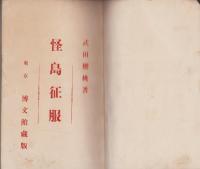 武田櫻桃著
怪島征服
東京 博文館藏版